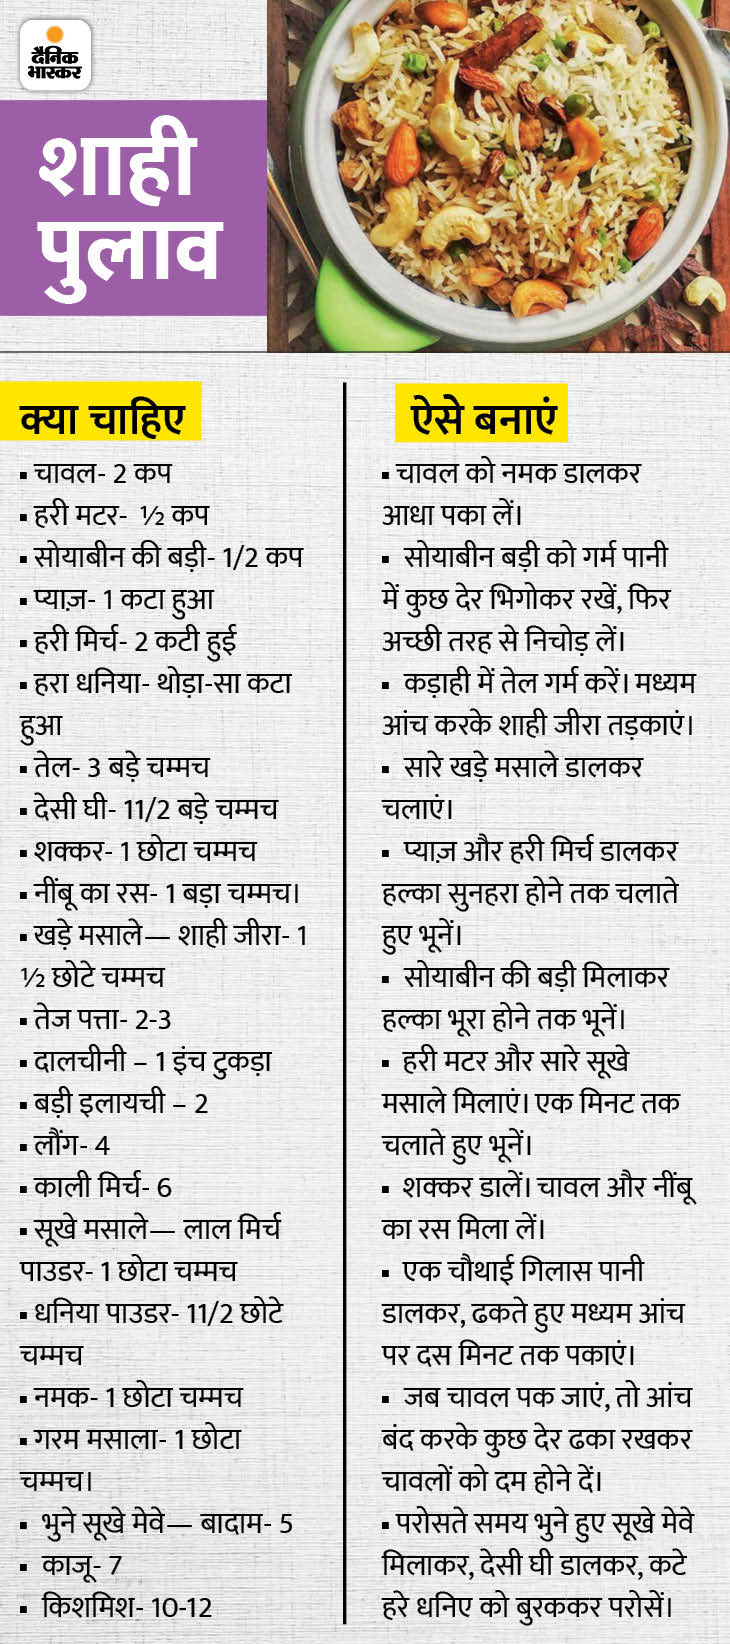 दैनिक
भास्कर
शाही
पुलाव
क्या चाहिए
▪ चावल- 2 कप
▪ हरी मटर- ½ कप
▪ सोयाबीन की बड़ी- 1/2 कप
▪ प्याज़- 1 कटा हुआ
▪ हरी मिर्च- 2 कटी हुई
▪ हरा धनिया- थोड़ा-सा कटा
हुआ
▪ तेल- 3 बड़े चम्मच
▪ देसी घी- 11/2 बड़े चम्मच
▪ शक्कर- 1 छोटा चम्मच
▪ नींबू का रस- 1 बड़ा चम्मच।
▪ खड़े मसाले— शाही जीरा- 1
½ छोटे चम्मच
▪ तेज पत्ता- 2-3
▪ दालचीनी – 1 इंच टुकड़ा
▪ बड़ी इलायची – 2
▪ लौंग- 4
▪ काली मिर्च- 6
▪ सूखे मसाले— लाल मिर्च
पाउडर- 1 छोटा चम्मच
▪ धनिया पाउडर- 11/2 छोटे
चम्मच
▪ नमक- 1 छोटा चम्मच
▪ गरम मसाला- 1 छोटा
चम्मच।
▪ भुने सूखे मेवे— बादाम- 5
▪ काजू- 7
▪ किशमिश- 10-12
ऐसे बनाएं
▪ चावल को नमक डालकर
आधा पका लें।
▪ सोयाबीन बड़ी को गर्म पानी
में कुछ देर भिगोकर रखें, फिर
अच्छी तरह से निचोड़ लें।
▪ कड़ाही में तेल गर्म करें। मध्यम
आंच करके शाही जीरा तड़काएं।
▪ सारे खड़े मसाले डालकर
चलाएं।
▪ प्याज़ और हरी मिर्च डालकर
हल्का सुनहरा होने तक चलाते
हुए भूनें।
▪ सोयाबीन की बड़ी मिलाकर
हल्का भूरा होने तक भूनें।
▪ हरी मटर और सारे सूखे
मसाले मिलाएं। एक मिनट तक
चलाते हुए भूनें।
▪ शक्कर डालें। चावल और नींबू
का रस मिला लें।
▪ एक चौथाई गिलास पानी
डालकर, ढकते हुए मध्यम आंच
पर दस मिनट तक पकाएं।
▪ जब चावल पक जाएं, तो आंच
बंद करके कुछ देर ढका रखकर
चावलों को दम होने दें।
▪ परोसते समय भुने हुए सूखे मेवे
मिलाकर, देसी घी डालकर, कटे
हरे धनिए को बुरककर परोसें।